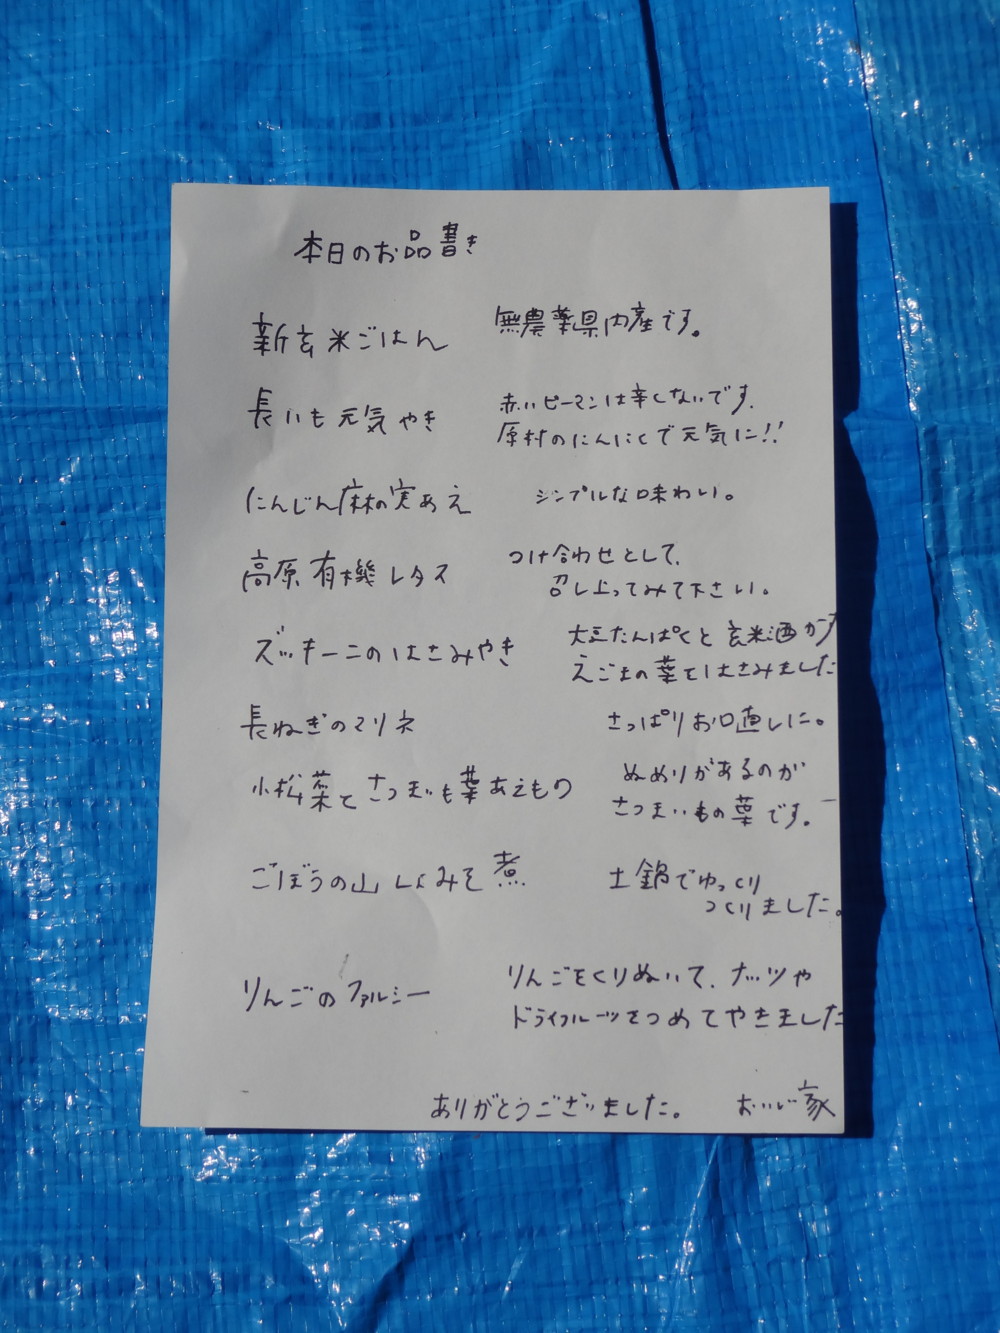 本日のお品書き
新玄米ごはん
無農薬県内産です。
長いも元気やき
赤いピーマンは辛くないです。
原村のにんにくで元気に!!
にんじん麻の実あえ
シンプルな味わい。
高原有機レタス
つけ合わせとして、
召し上ってみて下さい。
ズッキーニのはさみやき
大豆たんぱくと玄米酒かす
えごまの葉をはさみました
長ねぎのマリネ
さっぱりお口直しに。
小松菜とさつまいも葉あえもの
ぬめりがあるのが
さつまいもの葉です。
ごぼうの山しょみそ煮
土鍋でゆっくり
つくりました。
りんごのファルシー
りんごをくりぬいて、ナッツや
ドライフルーツをつめてやきました
ありがとうございました。 おいしい家